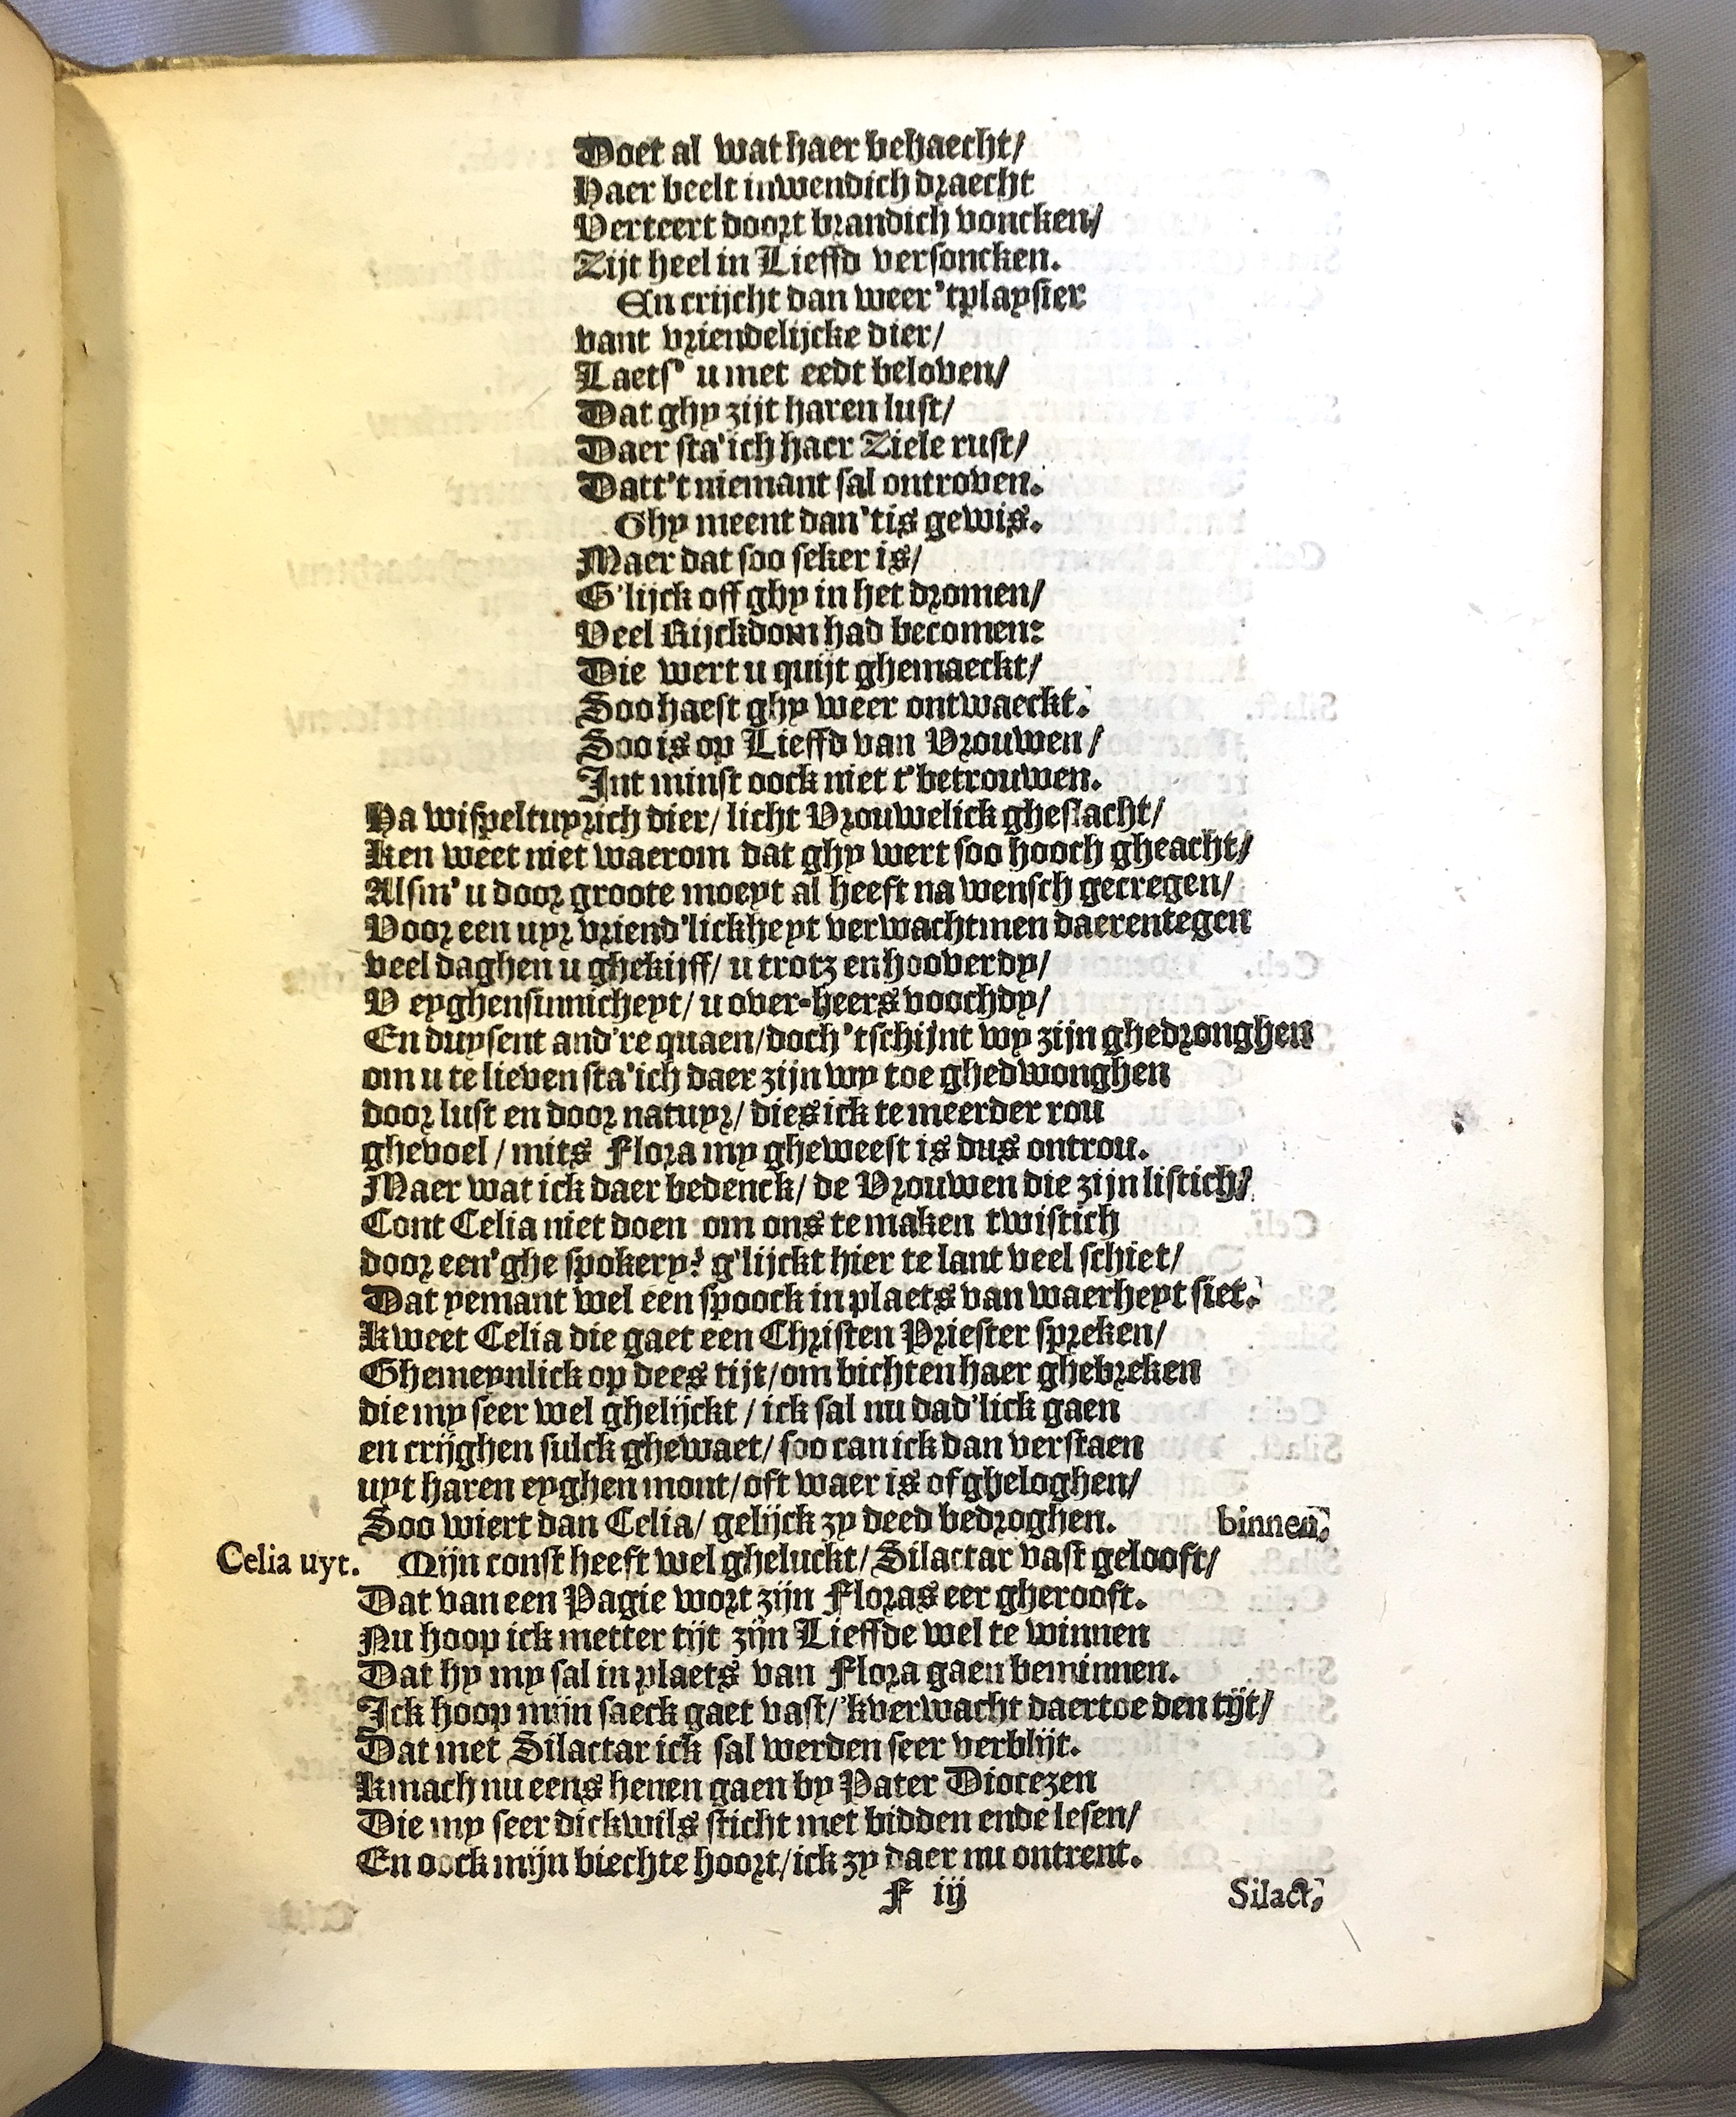 Doet al wat haer behaecht/
Haer beelt inwendich draecht
Verteert doort brandich voncken/
Zijt heel in Lieffd versoncken.
En crijcht dan weer 'tplaysier
vant vriendelijcke dier/
Laets' u met eedt beloven/
Dat ghy zijt haren lust/
Daer sta'ich haer Ziele rust/
Datt't niemant sal ontroven.
Ghy meent dan 'tis gewis.
Maer dat soo seker is/
G'lijck off ghy in het dromen/
Veel Rijckdom had becomen:
Die wert u quijt ghemaeckt/
Soo haest ghy weer ontwaeckt.
Soo is op Lieffd van Vrouwen/
Int minst oock niet t'betrouwen.
Ha wispeltuyrich dier/ licht Vrouwelick gheslacht/
Ken weet niet waerom dat ghy wert soo hooch gheacht/
Alsm' u door groote moeyt al heeft na wensch gecregen/
Voor een uyr vriend'lickheyt verwachtmen daerentegen
veel daghen u ghekijff/ u trotz en hooverdy/
V eyghensinnicheyt/ u over-heers voochdy/
En duysent and're quaen/ doch 'tschijnt wy zijn ghedronghen
om u te lieven sta'ich daer zijn wy toe ghedwonghen
door lust en door natuyr/ dies ick te meerder rou
ghevoel/ mits Flora my gheweest is dus ontrou.
Maer wat ick daer bedenck/ de Vrouwen die zijn listich/
Cont Celia niet doen om ons te maken twistich
door een'ghe spokery? g'lijckt hier te lant veel schiet/
Dat yemant wel een spoock in plaets van waerheyt siet.
Kweet Celia die gaet een Christen Priester spreken/
Ghemeynlick op dees tijt/ om bichten haer ghebreken
die my seer wel ghelijckt/ ick sal nu dad'lick gaen
en crijghen sulck ghewaet/ soo can ick dan verstaen
uyt haren eyghen mont/ oft waer is of gheloghen/
Soo wiert dan Celia/ gelijck zy deed bedroghen. binnen.
Celia uyt. Mijn const heeft wel gheluckt/ Silactar vast gelooft/
Dat van een Pagie wort zijn Floras eer gherooft.
Nu hoop ick metter tijt zijn Lieffde wel te winnen
Dat hy my sal in plaets van Flora gaen beminnen.
Ick hoop mijn saeck gaet vast/ 'kverwacht daertoe den tijt/
Dat met Silactar ick sal werden seer verblijt.
Kmach nu eens henen gaen by Pater Diocezen
Die my seer dickwils sticht met bidden ende lesen/
En oock mijn biechte hoort/ ick zy daer nu ontrent.
F iij Silact.